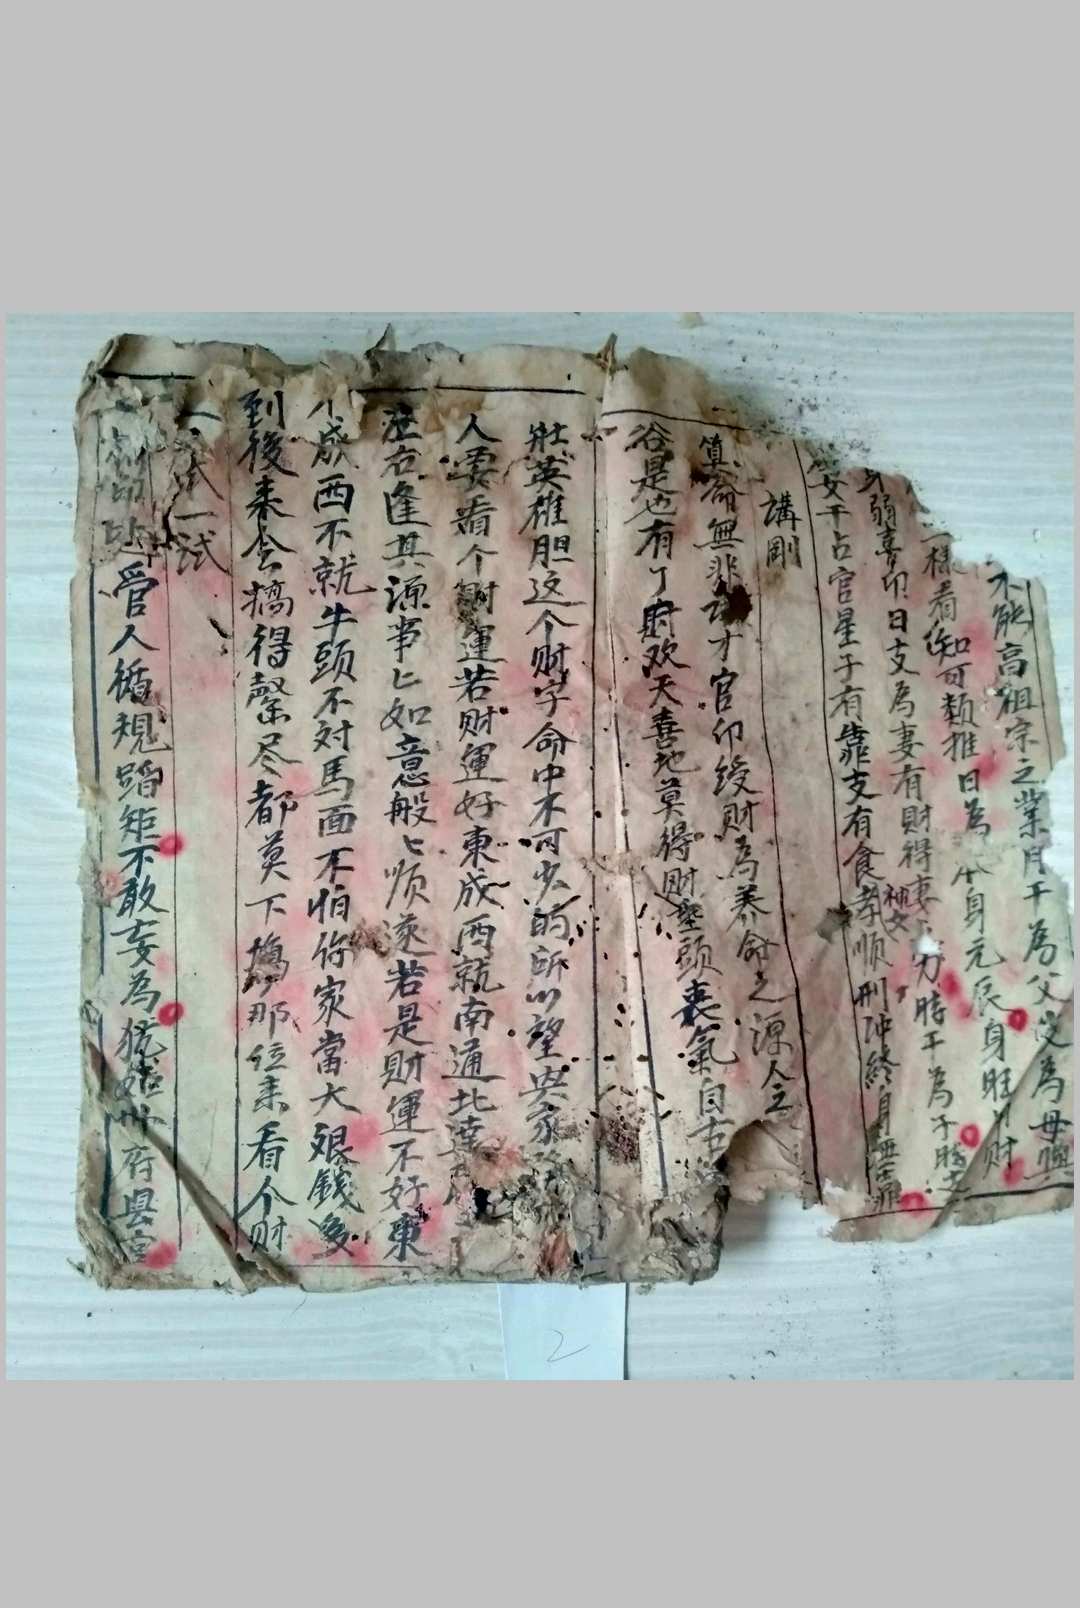 不能高祖宗之業月干為父支為母興
一樣看知可類推日為本身元辰身旺財
身弱喜印日支為妻有財得妻力時干為子時支
女干占官星子有靠支有食孝順刑冲終身無靠
神女
講剛
算命無非才官印綬財為養命之源人之
谷是也有了財欢天喜地莫得財垂頭喪氣自古
壯英雄胆这个财字命中不可少的所以望央家
人要看个財運若财運好東成西就南通北達
左右逢其源事匕如意般匕順遂若是財運不好東
不成西不就牛頭不対馬面不怕你家當大艮錢多
到後来会搞得罄尽都莫下塲那位来看个财
試一試
命帶印綬管人循規蹈矩不敢妄為犹如州府县官
2